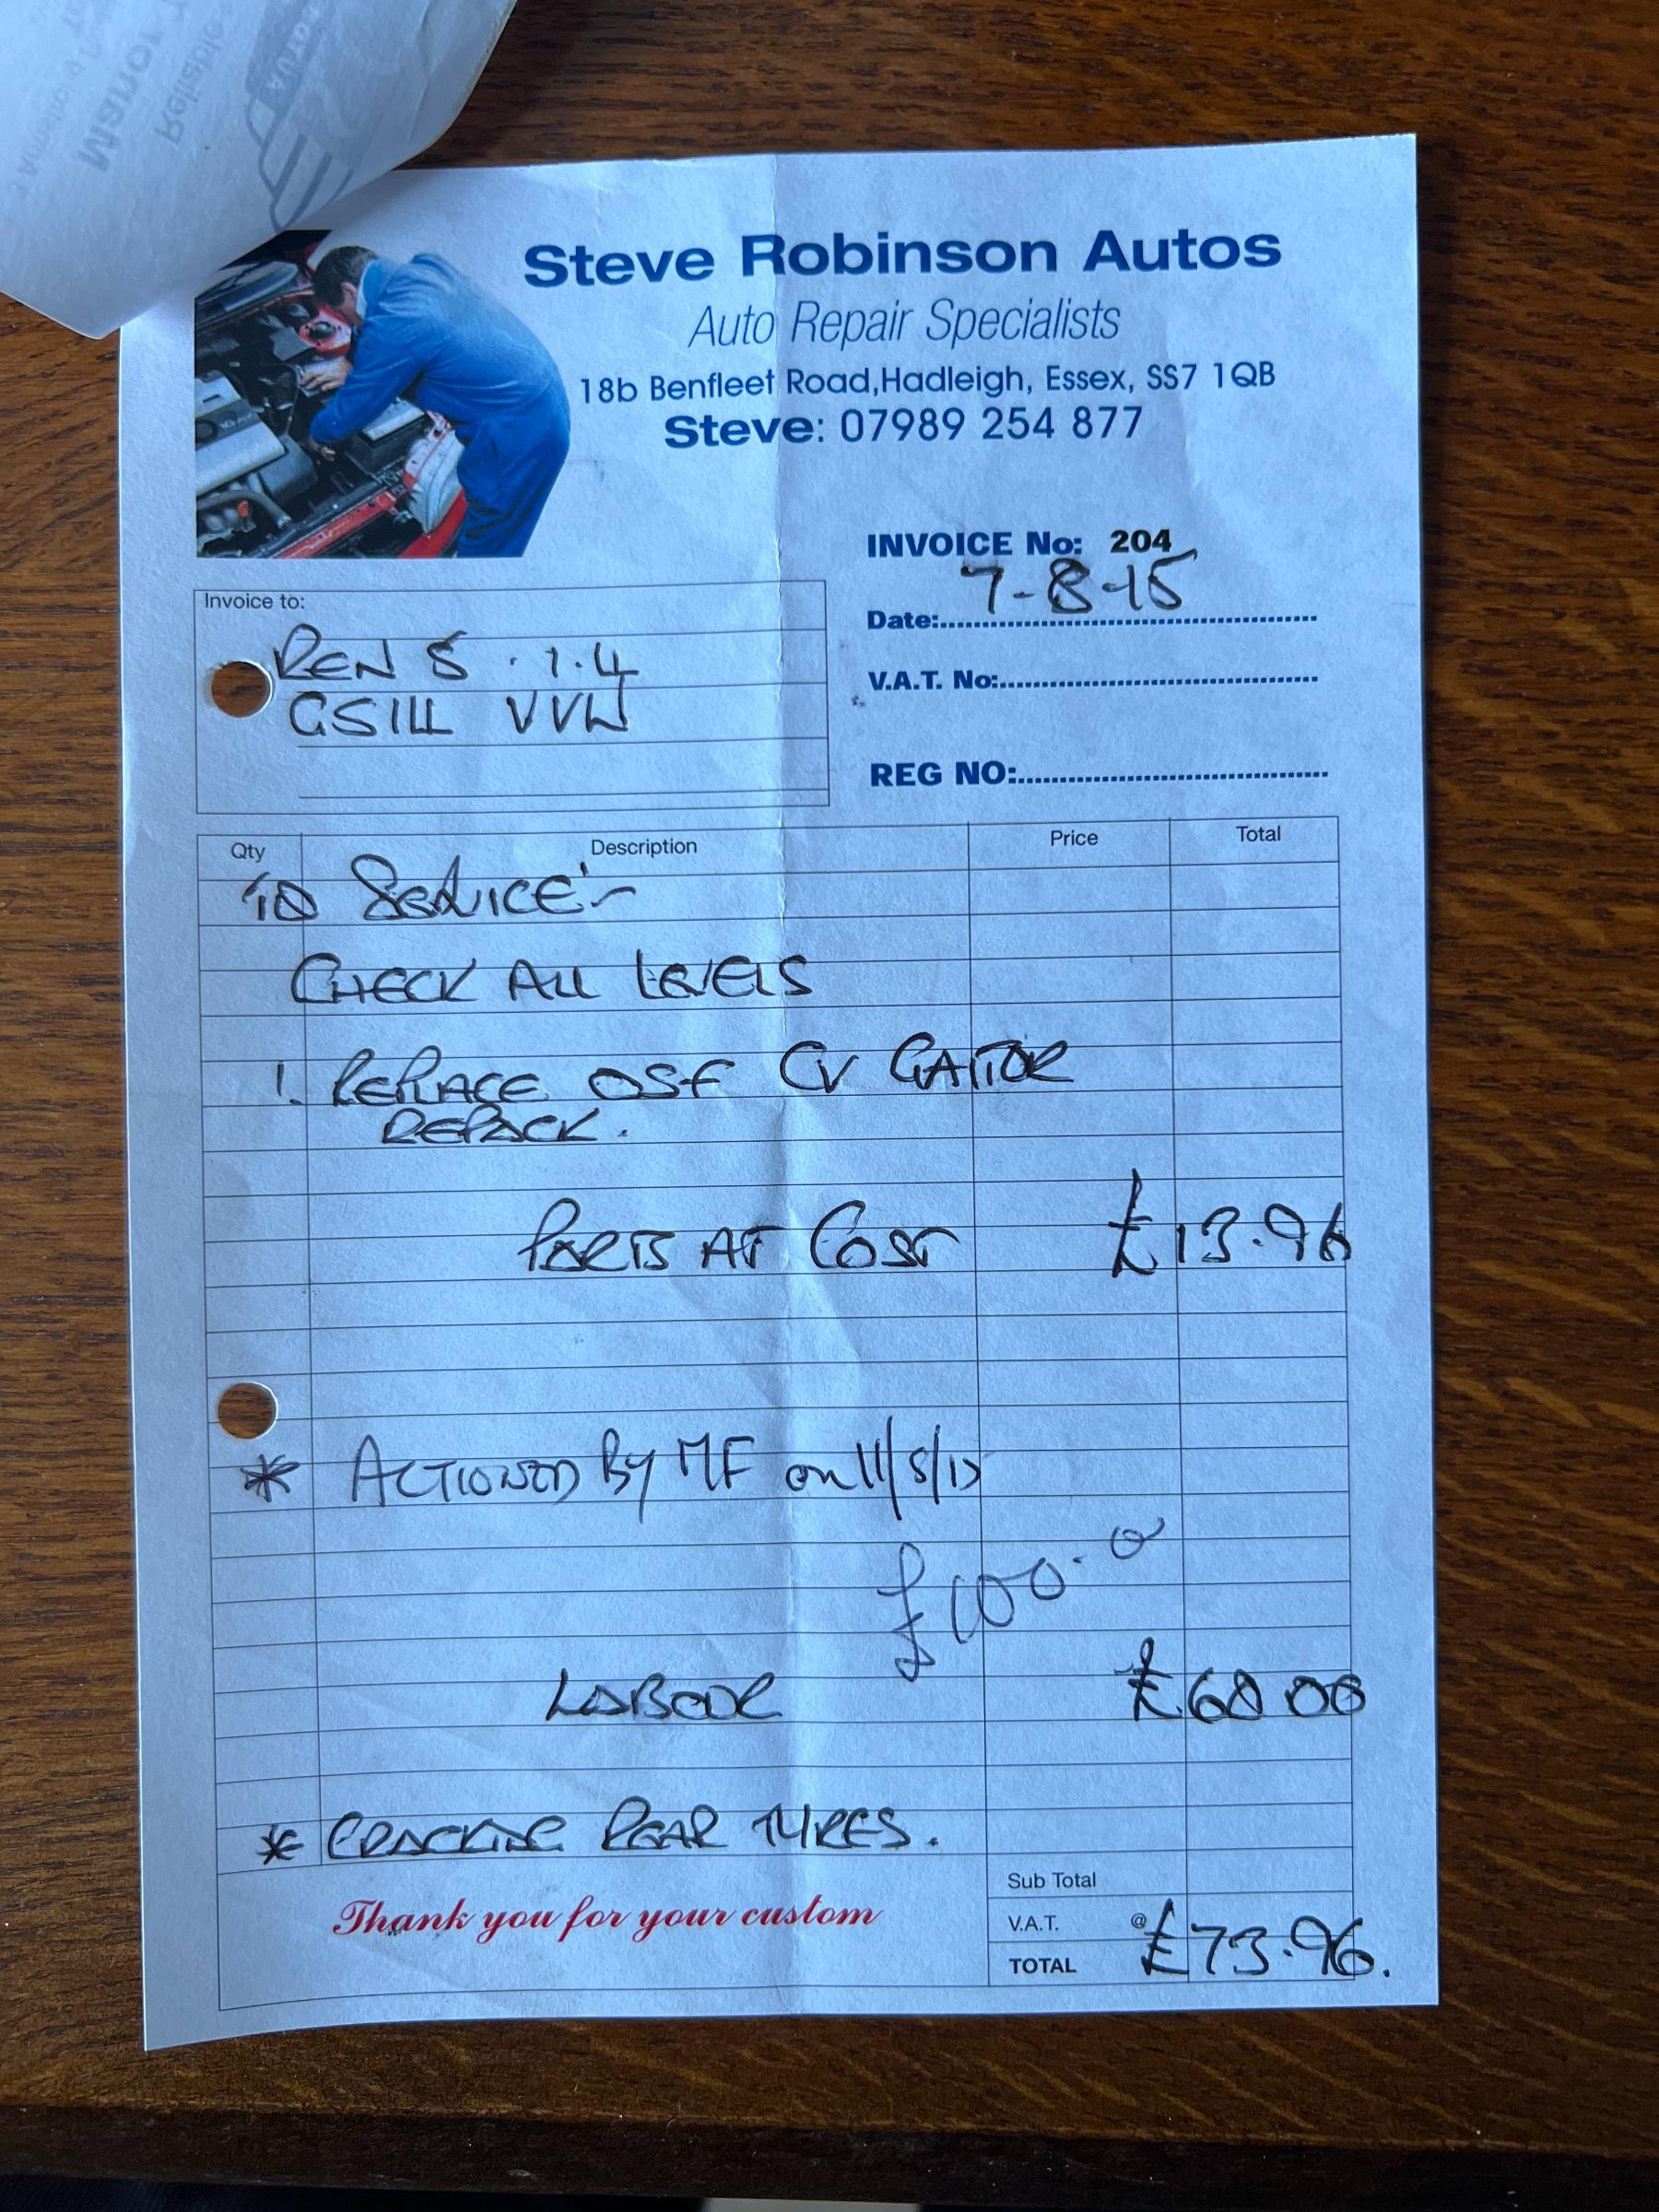 Manor
Reliable
Steve Robinson Autos
Auto Repair Specialists
18b Benfleet Road,Hadleigh, Essex, SS7 1QB
Steve: 07989 254 877
INVOICE No: 204
Date: 7-8-15
V.A.T. No:
REG NO:
Invoice to:
REN 5 . 1.4
VVW
Qty Description Price Total
TO SERVICE:-
CHECK ALL LEVELS
1. REPLACE OSF CV GAITOR
REPACK.
PARTS AT COST £13.96
* ACTIONED By MF on
£100.0
LABOUR £60 00
* CRACKING REAR TYRES.
Thank you for your custom
Sub Total
V.A.T. @
TOTAL £73.96.